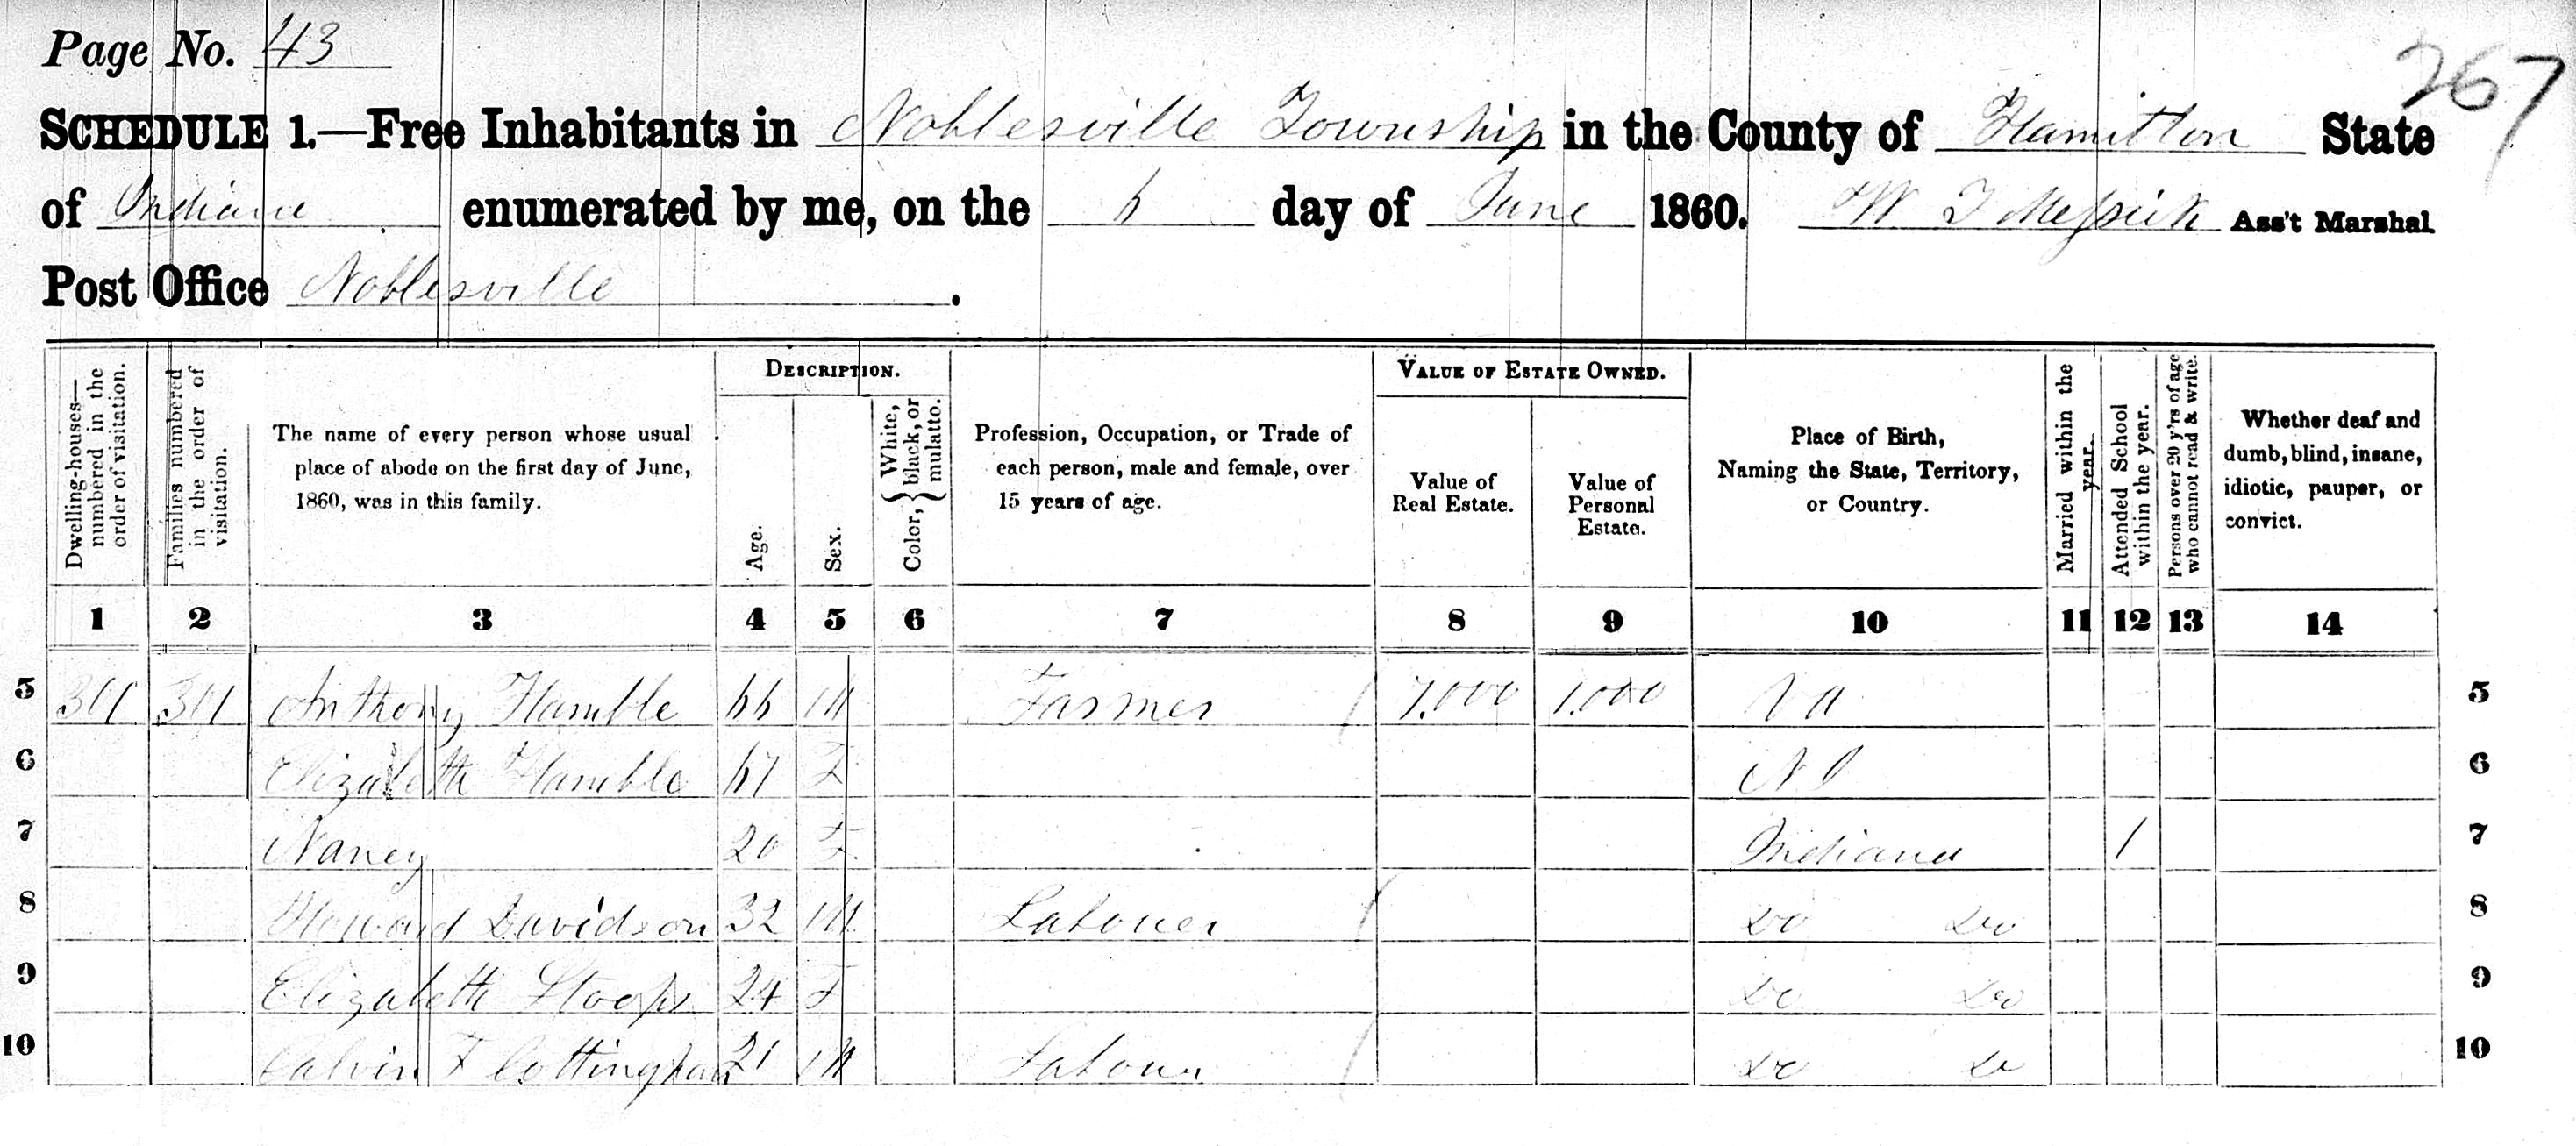 Page No. 43
267
SCHEDULE 1.—Free Inhabitants in Noblesville Township in the County of Hamilton State
of Indiana enumerated by me, on the 6 day of June 1860. W T Messick Ass't Marshal
Post Office Noblesville.
Dwelling-houses—numbered in the order of visitation.
Families numbered in the order of visitation.
The name of every person whose usual place of abode on the first day of June, 1860, was in this family.
DESCRIPTION.
Age.
Sex.
Color, { White, black, or mulatto.
Profession, Occupation, or Trade of each person, male and female, over 15 years of age.
VALUE OF ESTATE OWNED.
Value of Real Estate.
Value of Personal Estate.
Place of Birth, Naming the State, Territory, or Country.
Married within the year.
Attended School within the year.
Persons over 20 y'rs of age who cannot read & write.
Whether deaf and dumb, blind, insane, idiotic, pauper, or convict.
1 2 3 4 5 6 7 8 9 10 11 12 13 14
5 301 301 Anthony Hamble 66 M Farmer 7,000 1,000 Va 5
6 Elizabeth Hamble 67 F 6
7 Nancy 20 F Indiana / 7
8 Howard Davidson 32 M Labouer Do Do 8
9 Elizabeth Stoops 24 F Do Do 9
10 Calvin F Cottingham 21 M Labour Do Do 10